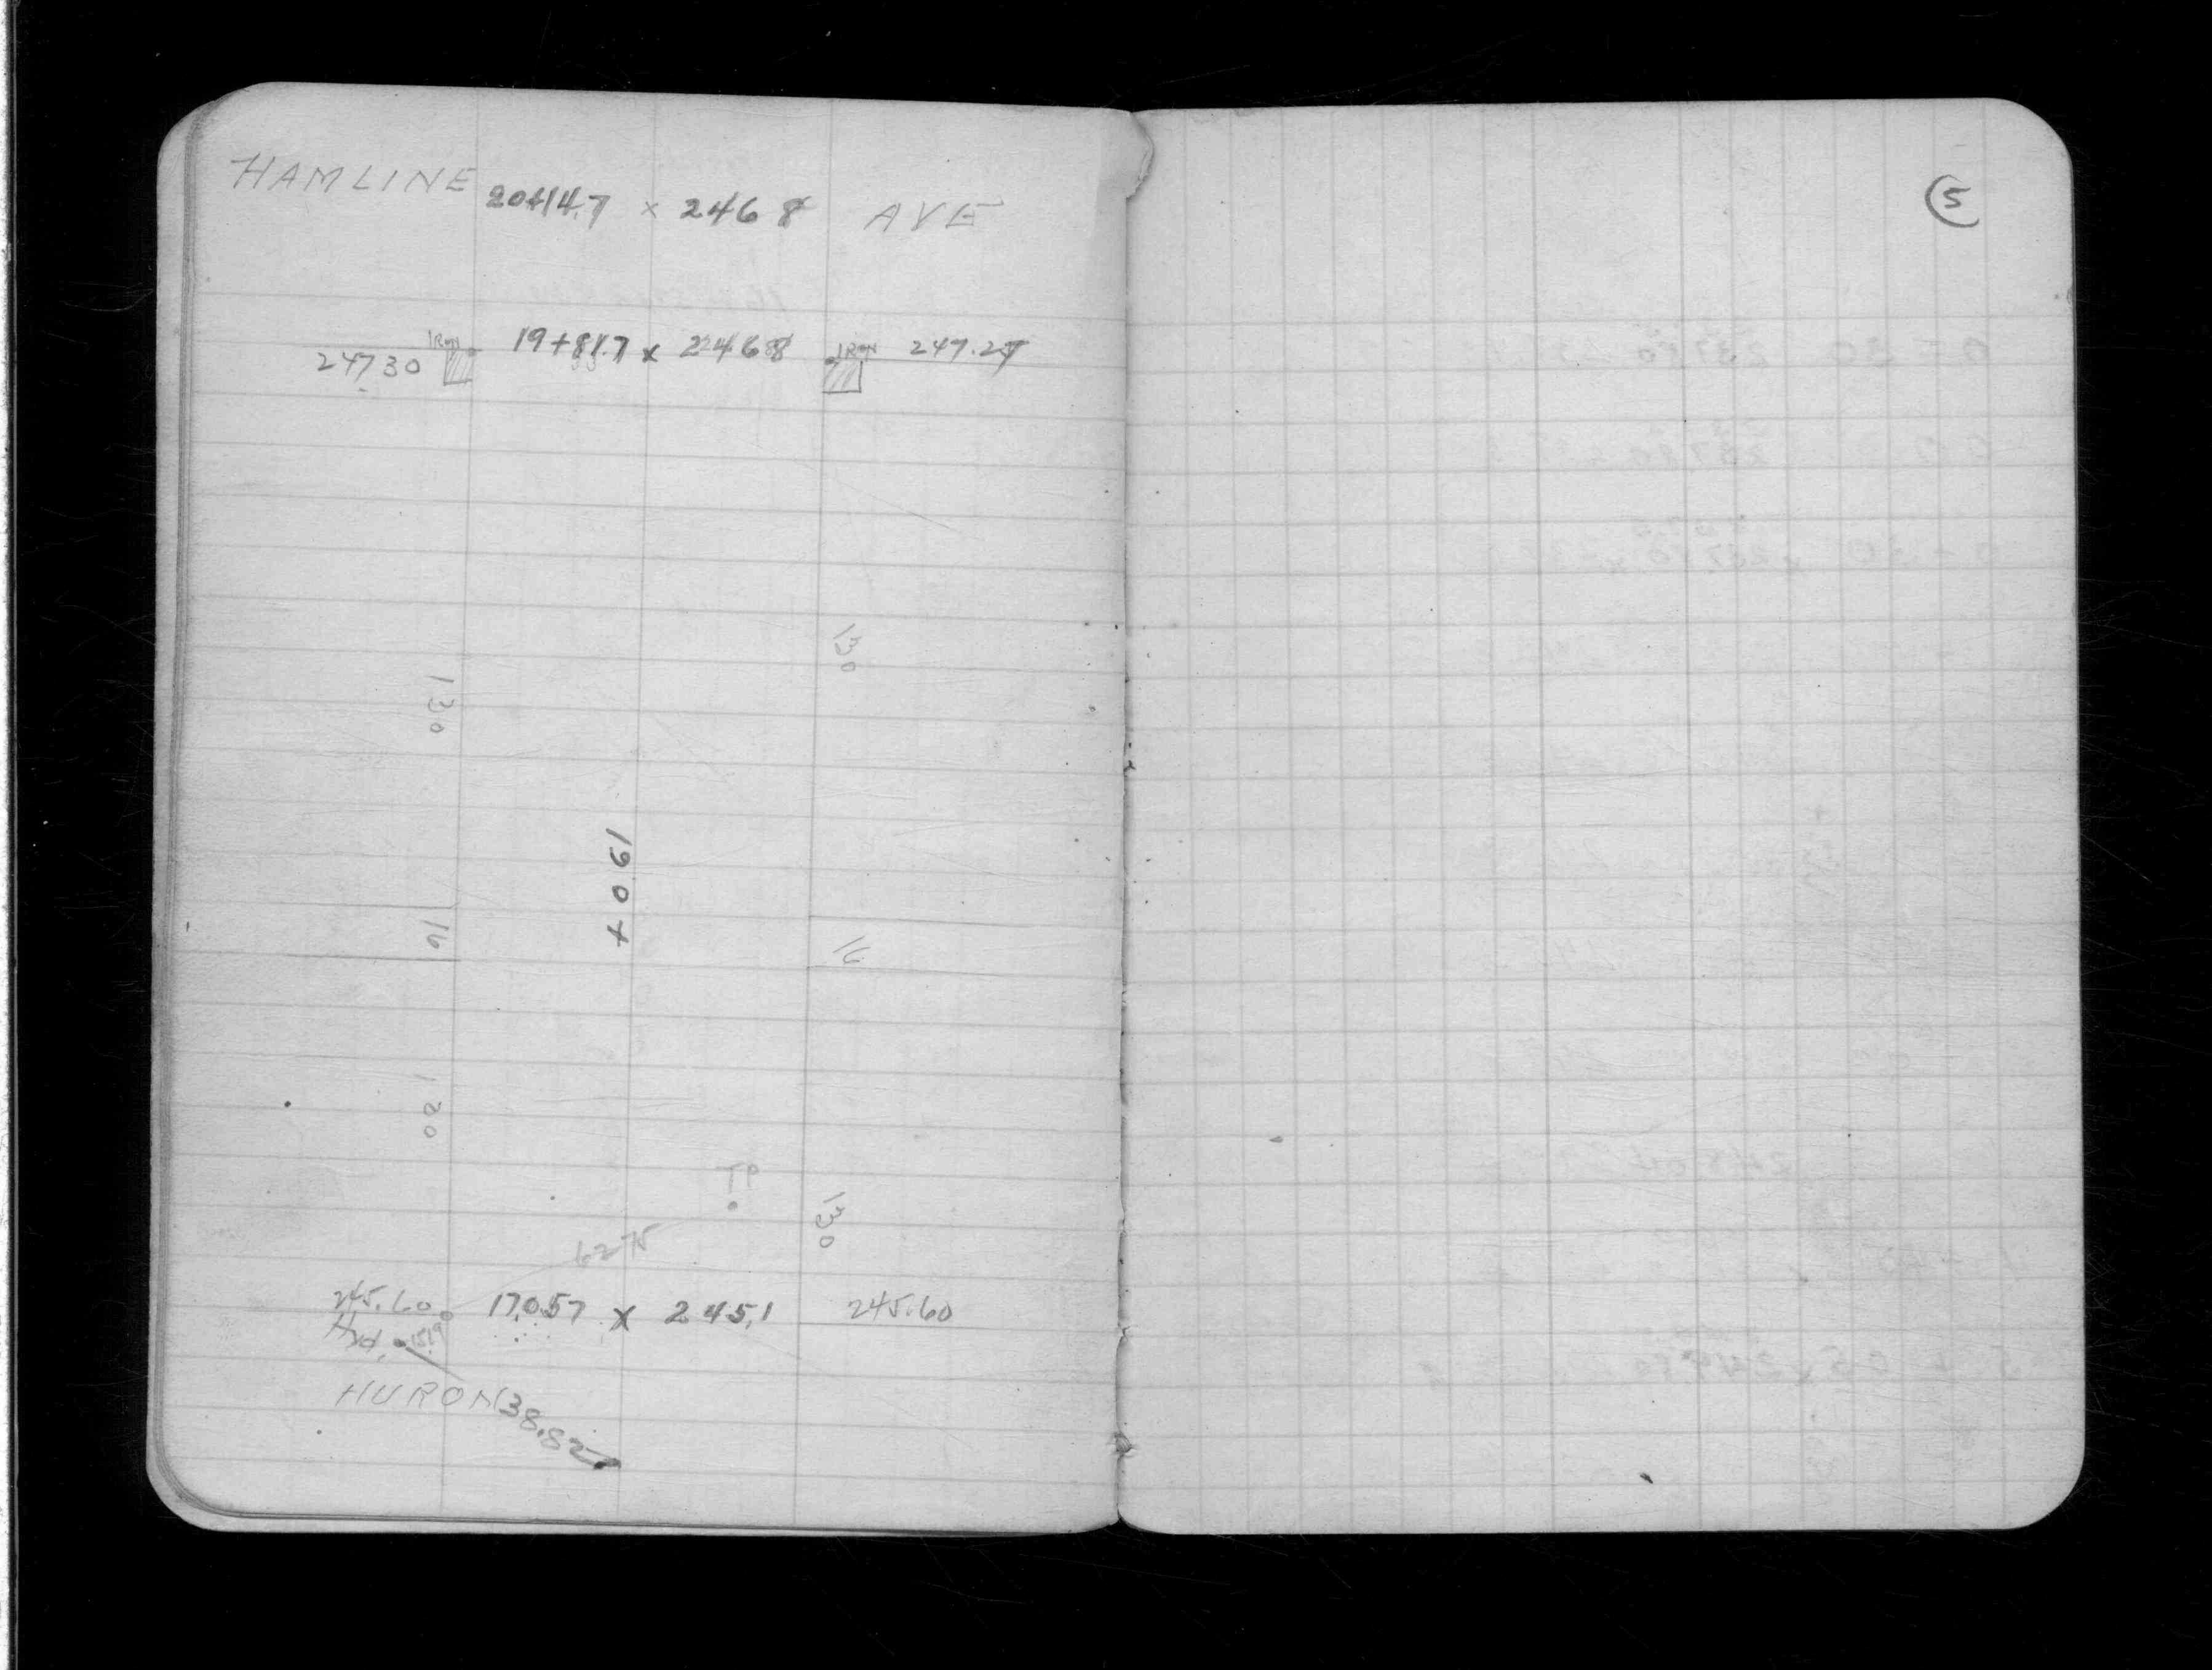 HAMLINE 20+14.7 x 246.8 AVE
247.30 IRON 19+81.7 x 246.8 IRON 247.27
130
130
190+
16
16
120
TP
130
62.75
245.60 17.057 x 245.1 245.60
Hyd. 15.19
HURON 138.82
5